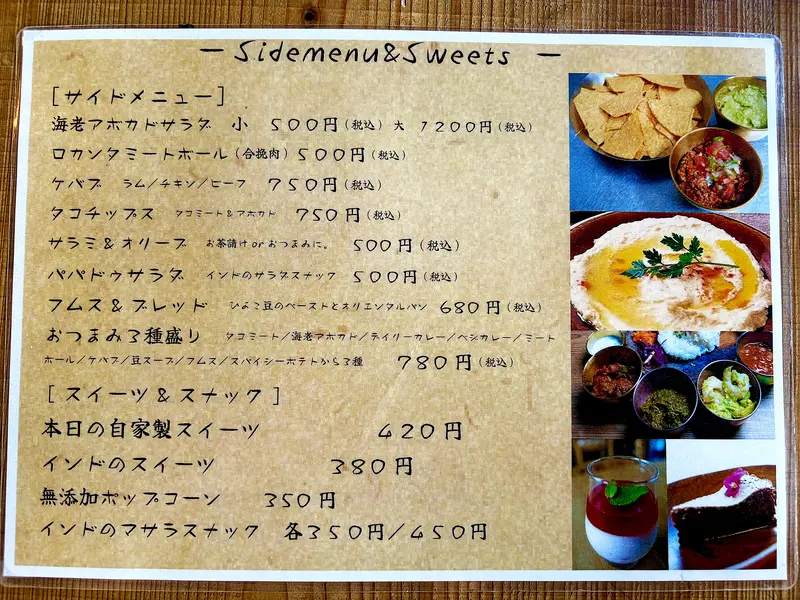 — Sidemenu&Sweets —
[サイドメニュー]
海老アボカドサラダ 小 500円(税込) 大 1200円(税込)
ロカンタミートボール(合挽肉)500円(税込)
ケバブ ラム/チキン/ビーフ 750円(税込)
タコチップス タコミート&アボカド 750円(税込)
サラミ&オリーブ お茶請けorおつまみに。 500円(税込)
パパドゥサラダ インドのサラダスナック 500円(税込)
フムス&ブレッド ひよこ豆のペーストとオリエンタルパン 680円(税込)
おつまみ3種盛り タコミート/海老アボカド/デイリーカレー/ベジカレー/ミート
ボール/ケバブ/豆スープ/フムス/スパイシーポテトから3種 780円(税込)
[スイーツ&スナック]
本日の自家製スイーツ 420円
インドのスイーツ 380円
無添加ポップコーン 350円
インドのマサラスナック 各350円/450円